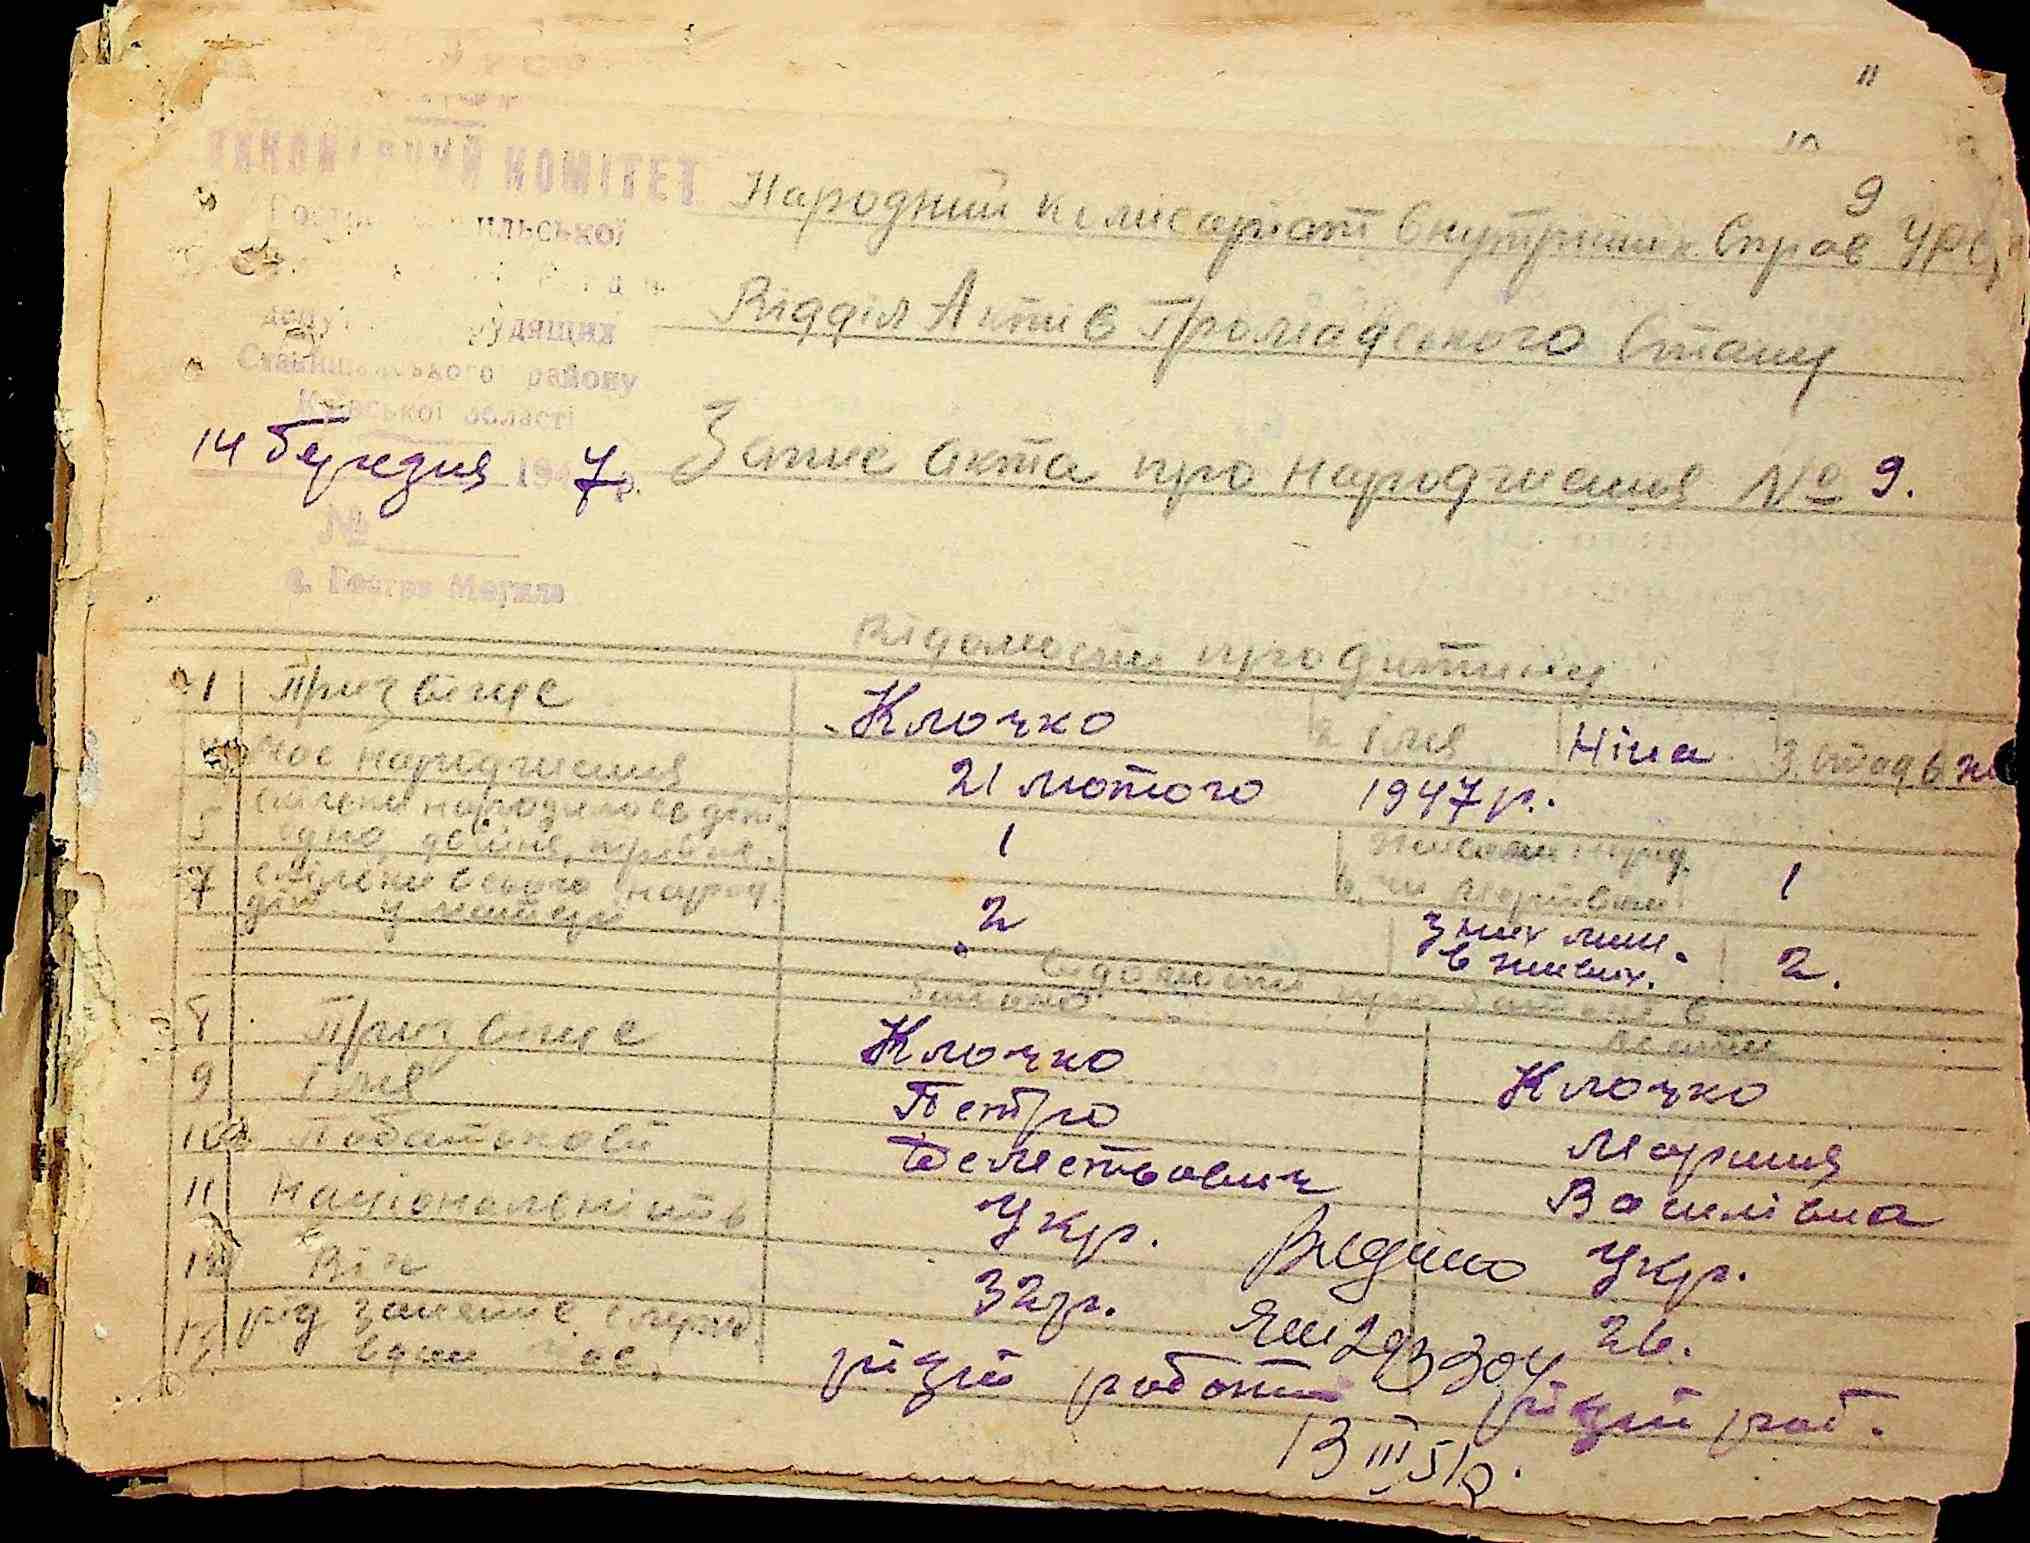 11
10
9
УРСР
ВИКОНАВЧИЙ КОМІТЕТ
Гостромогильської
депутатів трудящих
Ставищанського району
Київської області
14 березня 1947 р.
№
с. Гостра Могила
Народний комісаріат внутрішніх справ УРСР
Відділ Актів Громадського Стану
Запис акта про народження № 9.
Відомости про дитину
1 Призвіще Клочко 2 Імя Ніна 3. стать ж
Час народження 21 лютого 1947 р.
5 скільки народилось діт. одно, двійня, тройня. 1 6. живим народ. чи мертвим 1
7 скільки всього народ. діт. у матері 2 З них лиш. в живих. 2.
Відомости про батьків
батько мати
8 Призвіще Клочко Клочко
9 Імя Петро Мария
10 Побатькові Василівна
11 Національність Укр. Укр.
12 Вік 32 р. 26.
13 рід занять різній роботи різній роб.
Видано
ЯШ 293304
13 III 51 р.